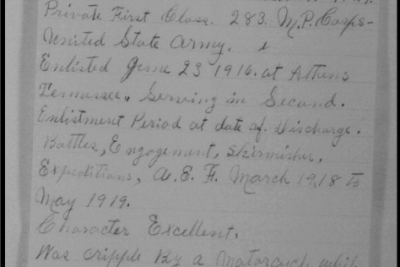 Private First Class. 283. M.P. Corps-
United State Army.
Enlisted June 23 1916. at Athens
Tennessee. Serving in Second.
Enlistment Period at date of Discharge.
Battles, Engagement, Skirmishes,
Expeditions, A.E.F. March 1918 to
May 1919.
Character Excellent.
Was cripple by a Motorcycle while